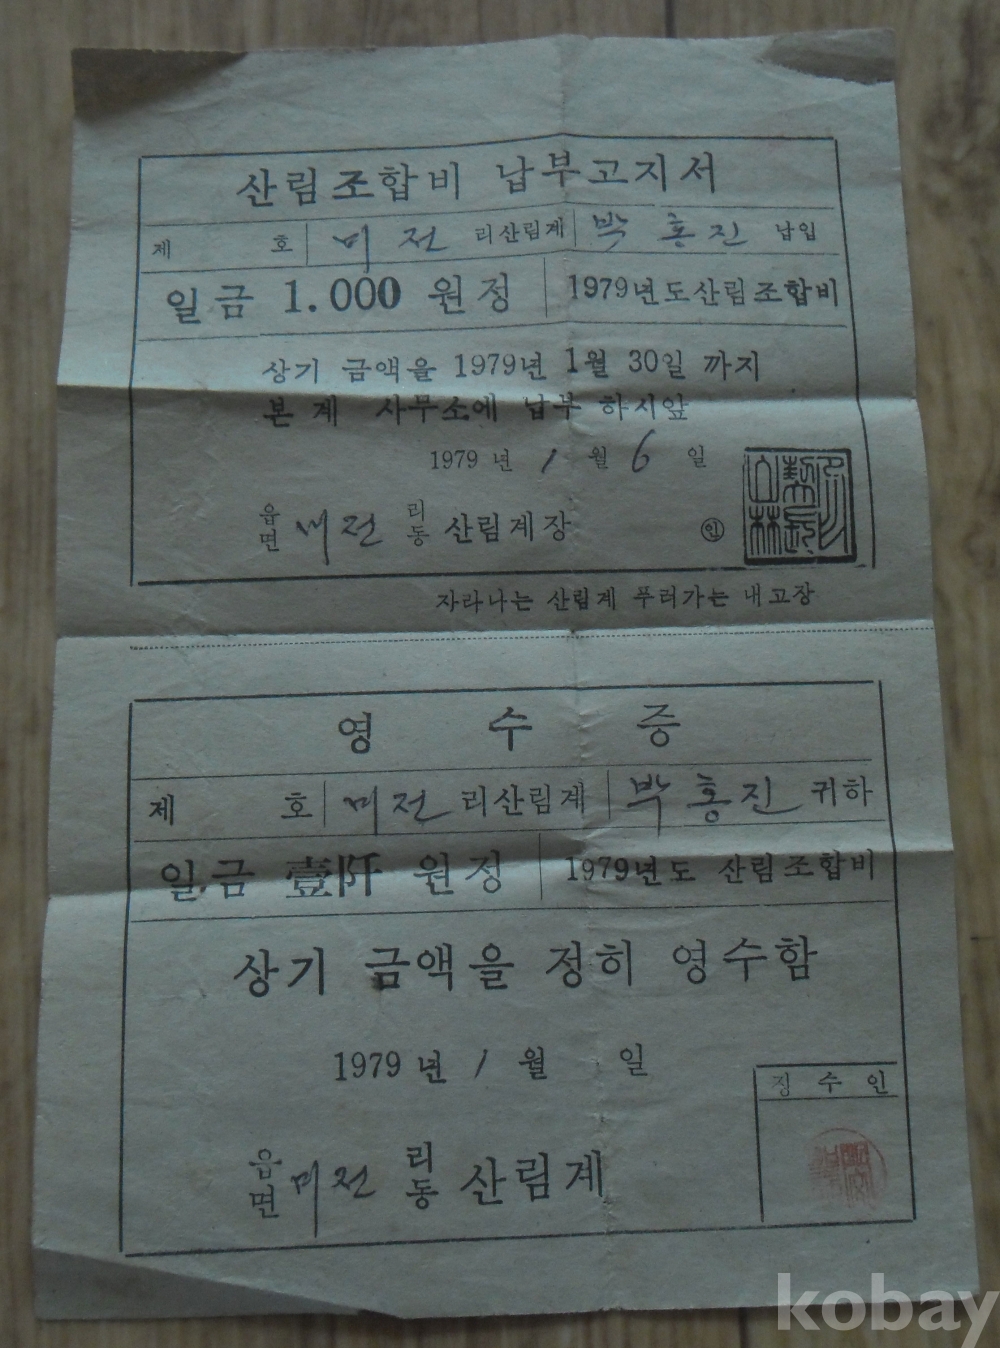 산림조합비 납부고지서
제 호 미전 리산림계 박홍진 납입
일금 1.000 원정 1979년도산림조합비
상기 금액을 1979년 1월 30일 까지
본계 사무소에 납부 하시앞
1979 년 1 월 6 일
읍면 미전 리동 산림계장 ㊞
자라나는 산림계 푸러가는 내고장
영 수 증
제 호 미전 리산림계 박홍진 귀하
일금 壹阡 원정 1979년도 산림조합비
상기 금액을 정히 영수함
1979 년 1 월 일
징 수 인
읍면 미전 리동 산림계
kobay